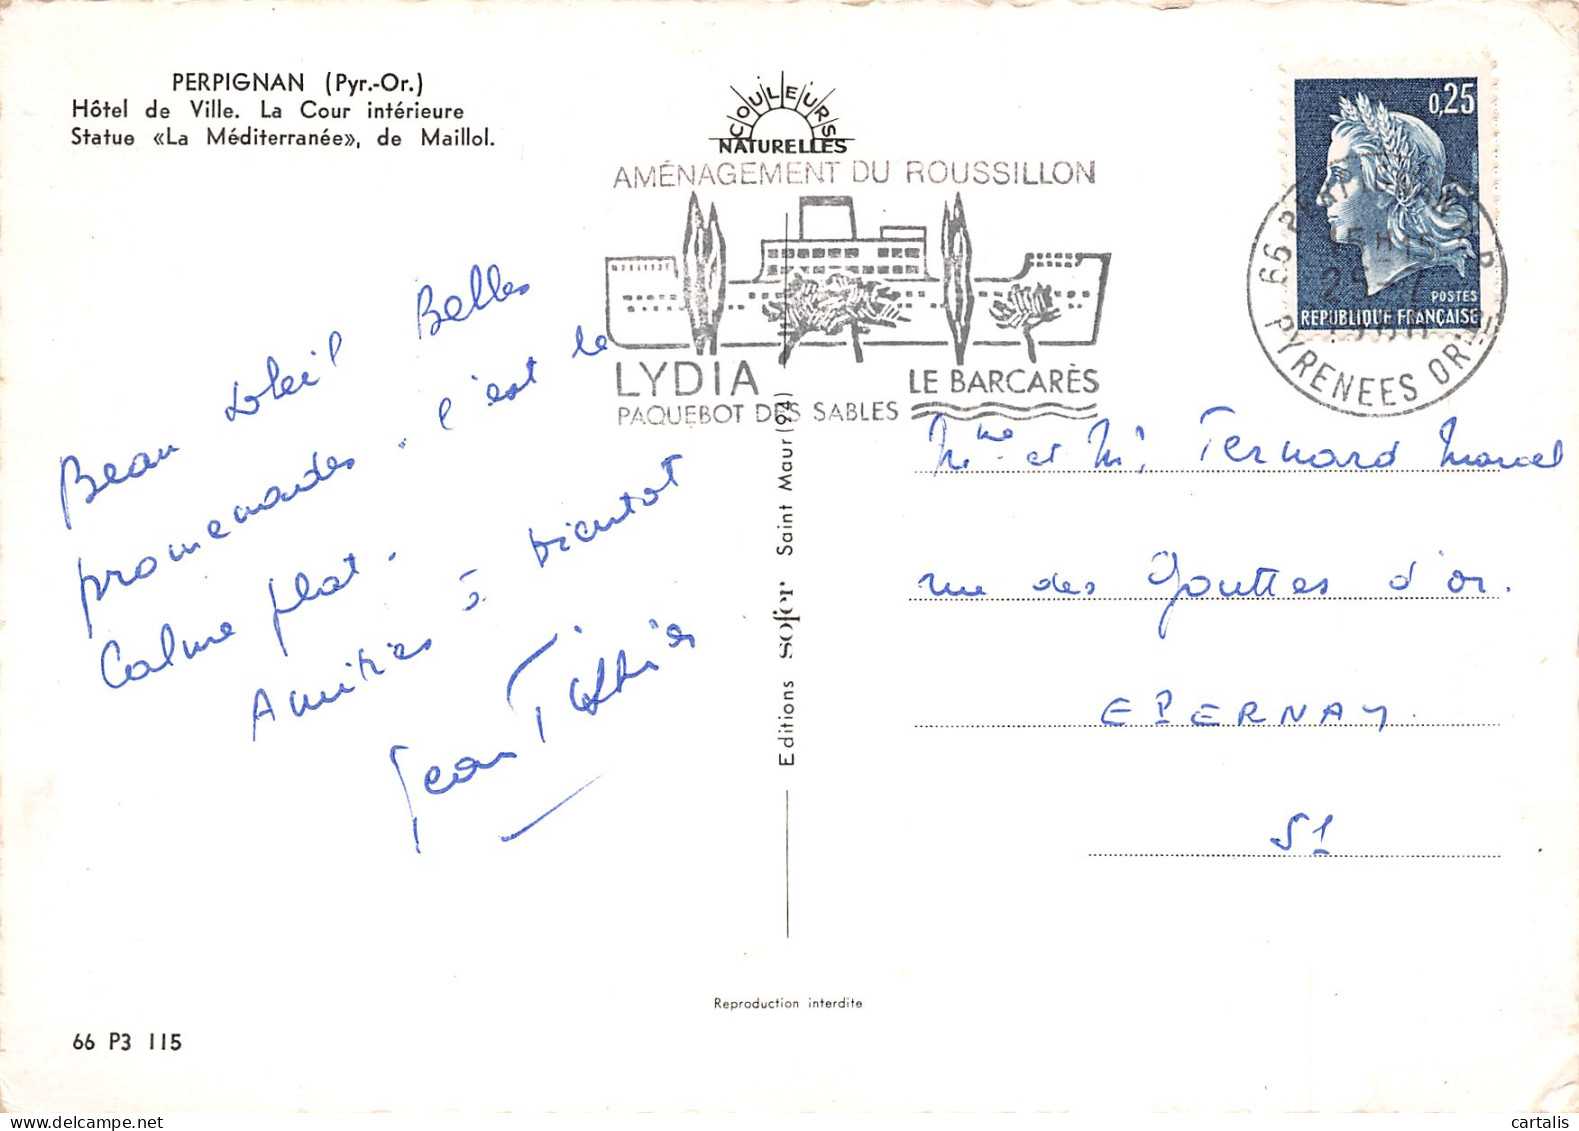 PERPIGNAN (Pyr.-Or.)
Hôtel de Ville. La Cour intérieure
Statue «La Méditerranée», de Maillol.
COULEURS
NATURELLES
AMÉNAGEMENT DU ROUSSILLON
LYDIA
PAQUEBOT DES SABLES
LE BARCARÈS
0,25
POSTES
REPUBLIQUE FRANÇAISE
66 PERPIGNAN R.P.
PYRENEES OR
Beau soleil Belles
promenades. c'est le
Calme plat.
Amitiés à bientot
Jean
Editions sofer Saint Maur (94)
Mme et Mr Fernard Marcel
rue des Gouttes d'or.
EPERNAY.
51
Reproduction interdite
66 P3 115
cartalis